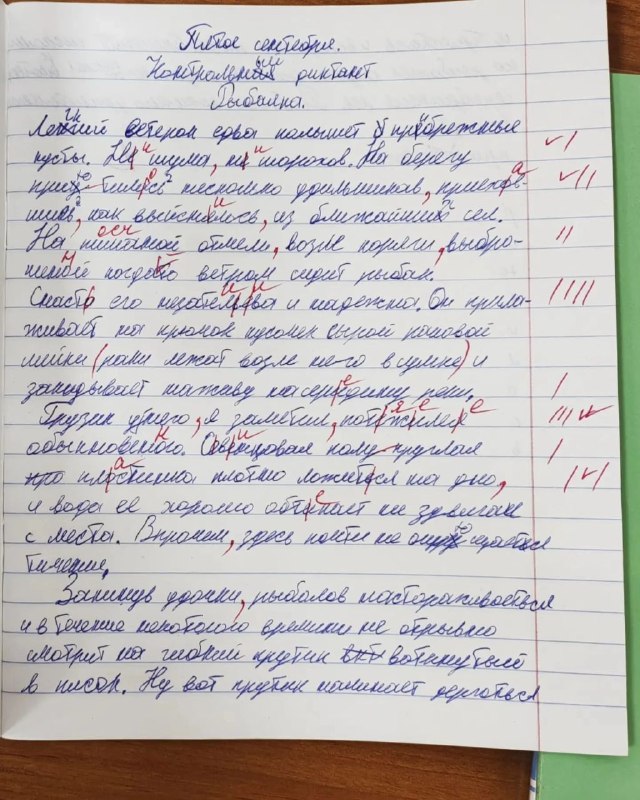 Пятое сентебря.
Контрольный диктант
Рыбалка.
Легкий ветерок едва колышет прибрежные
кусты. Ни шума, ни шорохов. На берегу
несколько удильшиков, приехав-
ших, как выяснилось, из ближайших сел.
На песчаной отмели, возле коряги, выбро-
шеной когдато ветром сидит рыбак.
Снасть его незатейлива и надежна. Он прила-
живает на крючок кусочек сырой раковой
шейки (раки лежат возле него в сумке) и
закидывает наживу на середину реки,
Грузик у него, я заметил, потяжелее
обыкновенного. Свинцовая полу круглая
пластинка плотно ложиться на дно,
и вода ее хорошо обтекает не здвигая
с места. Впрочем, здесь почти не
течение,
Закинув удочки, рыболов настораживаеться
и в течение некоторого времини не отрывно
смотрит на гибкий прутик воткнутый
в писок. Ну вот прутик начинает дергаться